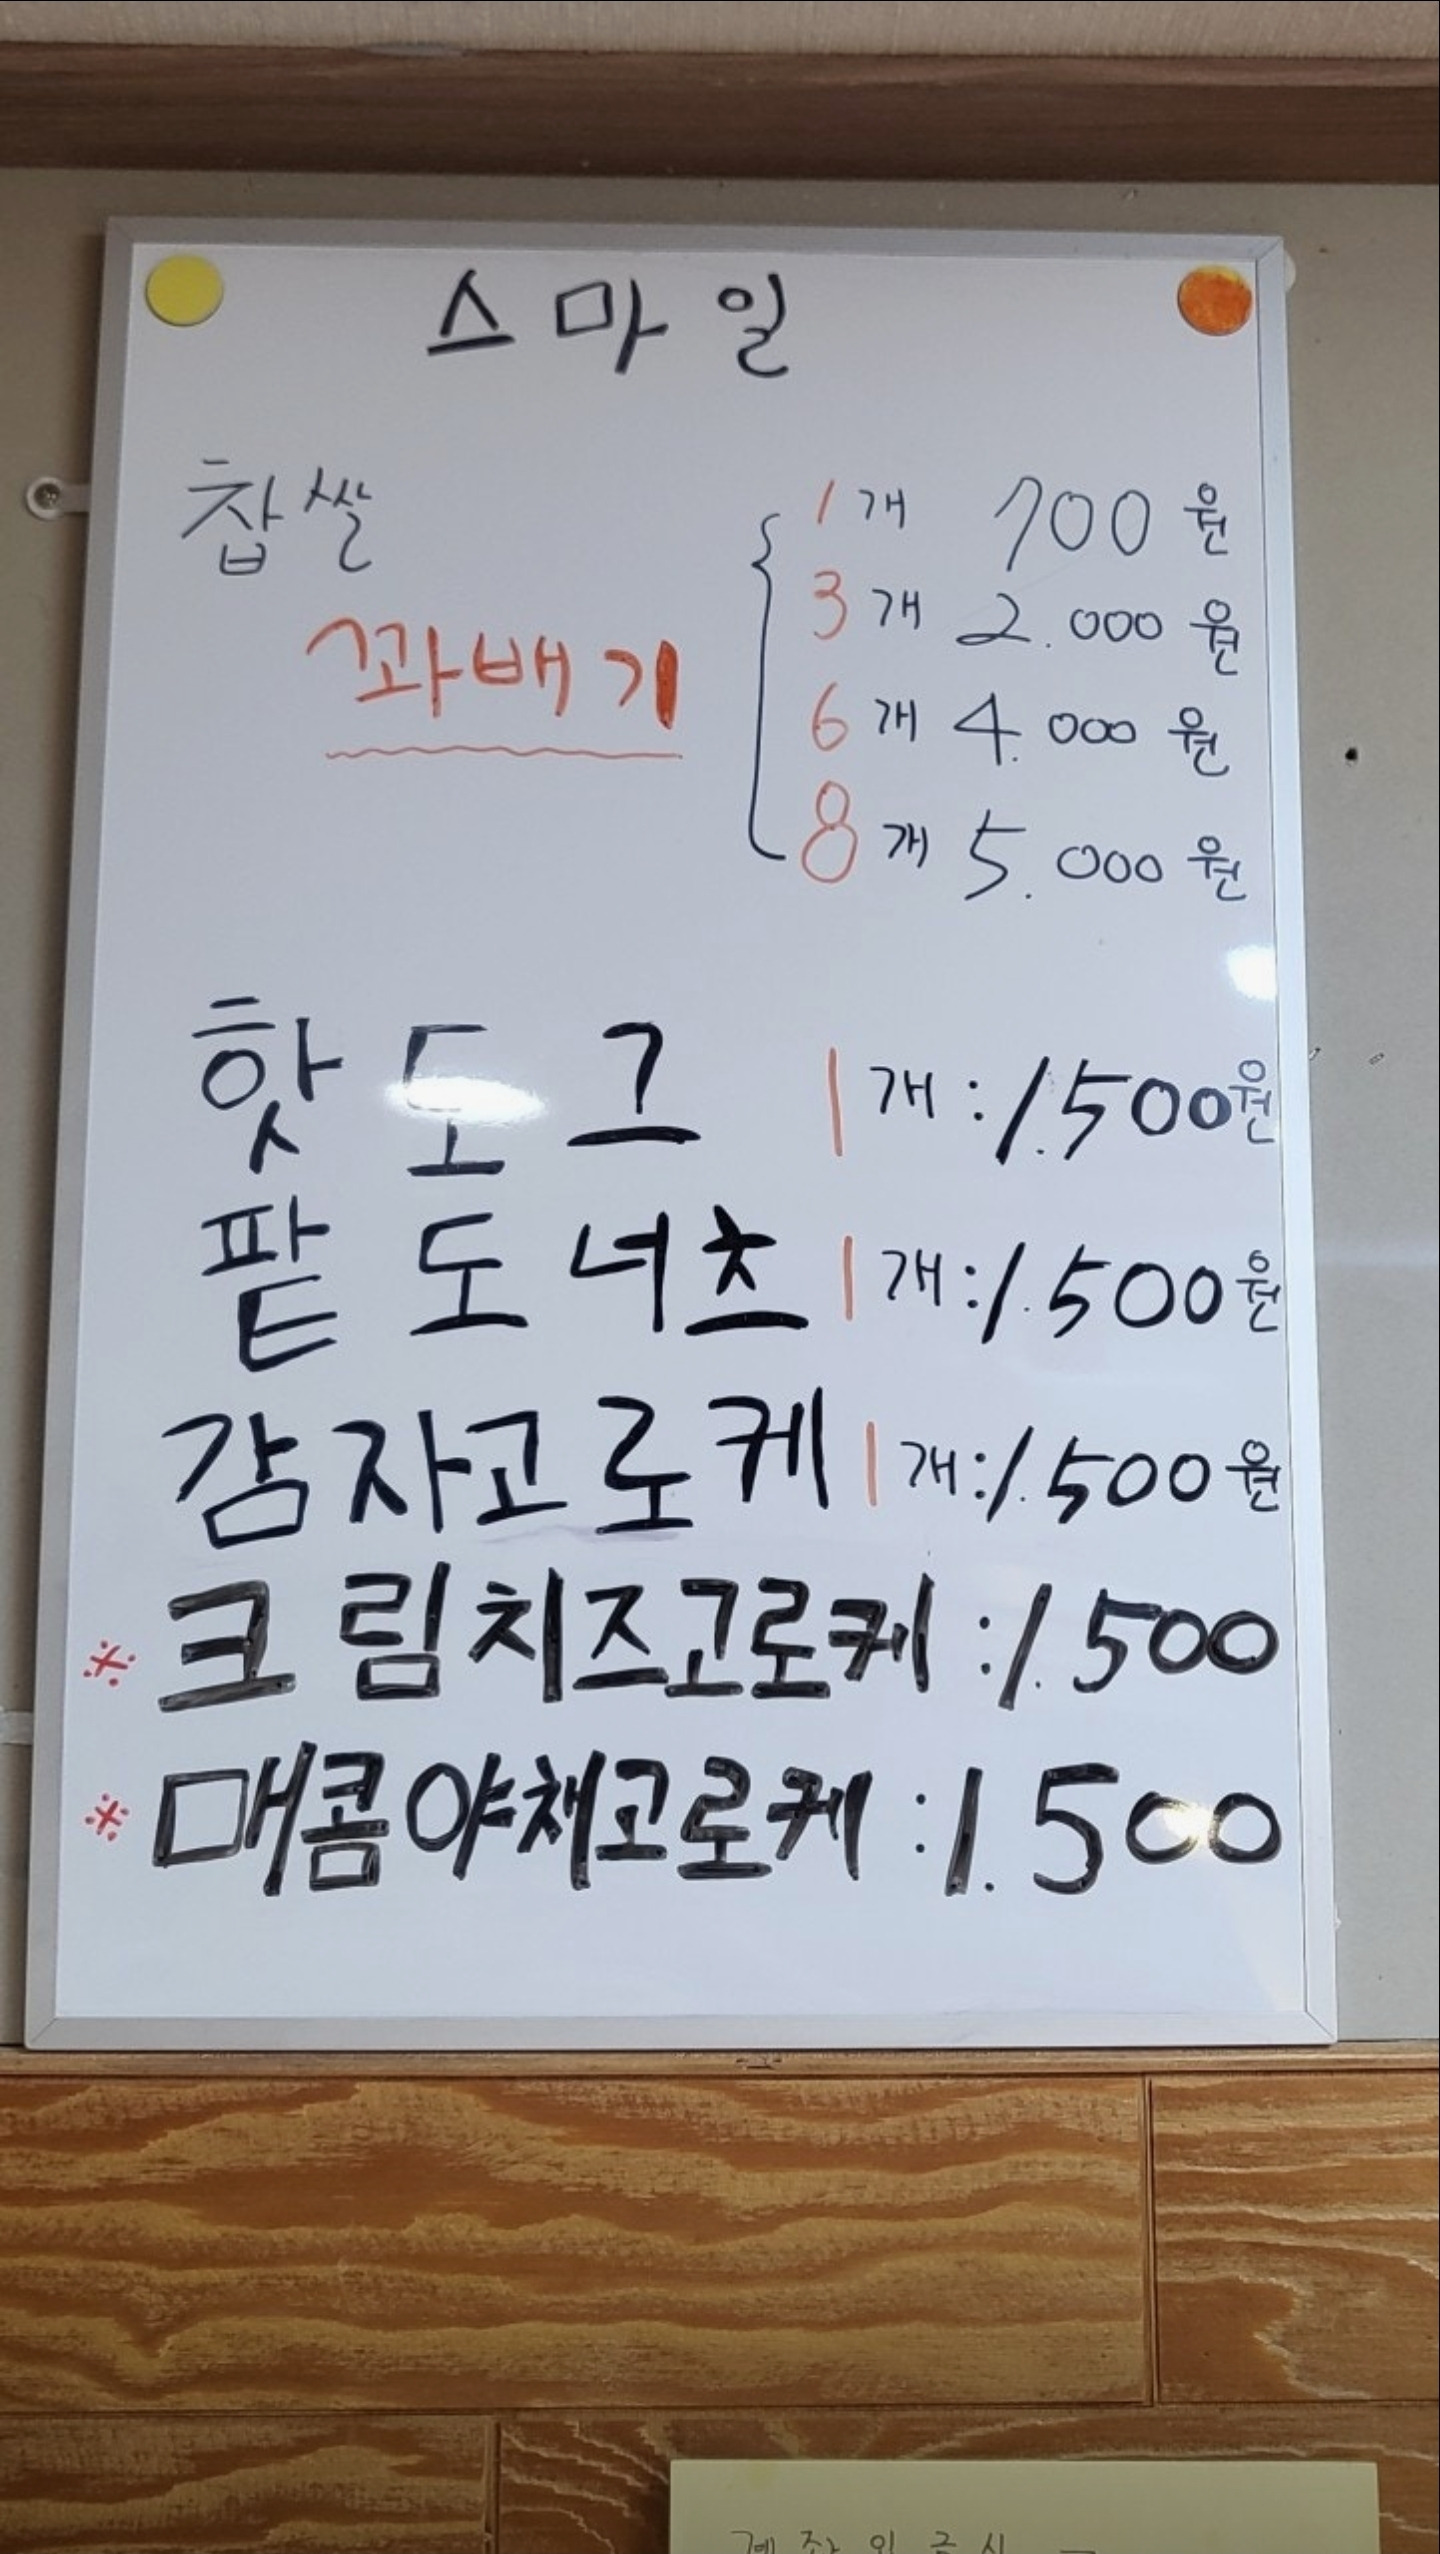 스마일
찹쌀
꽈배기
1개 700원
3개 2.000원
6개 4.000원
8개 5.000원
핫도그 1개:1.500원
팥도너츠 1개:1.500원
감자고로케 1개:1.500원
※크림치즈고로케:1.500
※매콤야채고로케:1.500